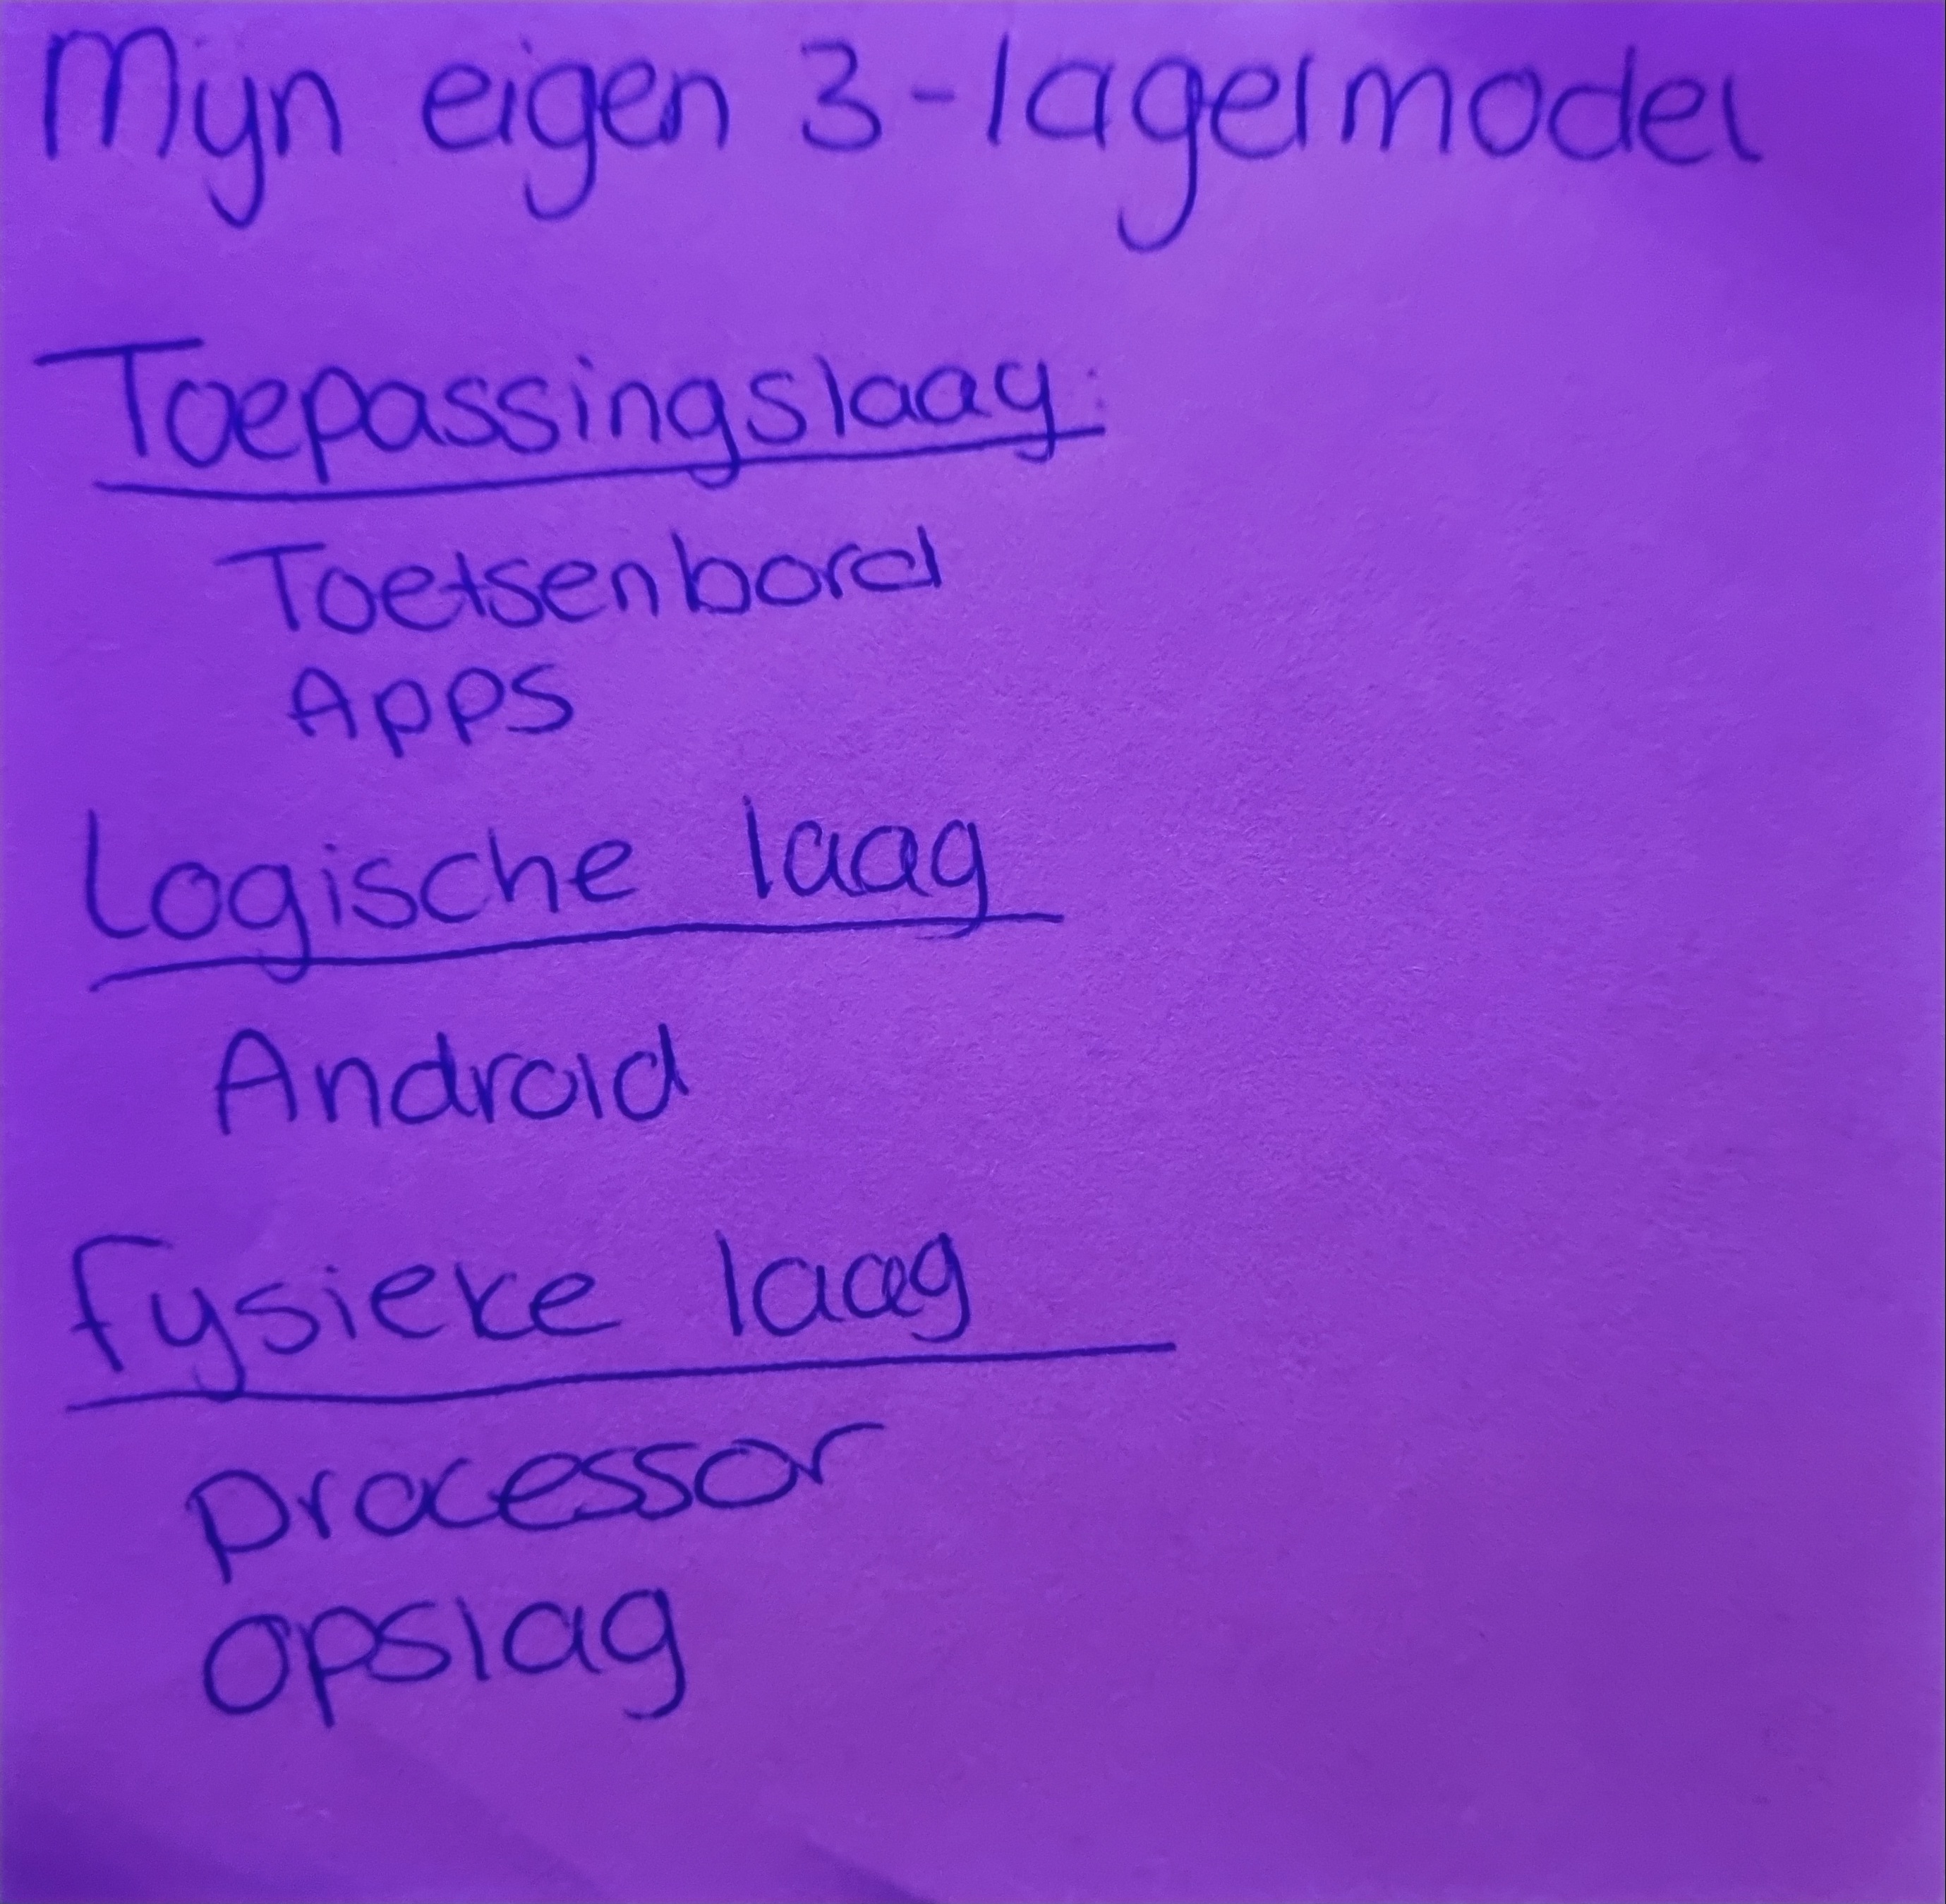 Mijn eigen 3-lagelmodel
Toepassingslaag:
Toetsenbord
Apps
Logische laag
Android
fysieke laag
processor
opslag